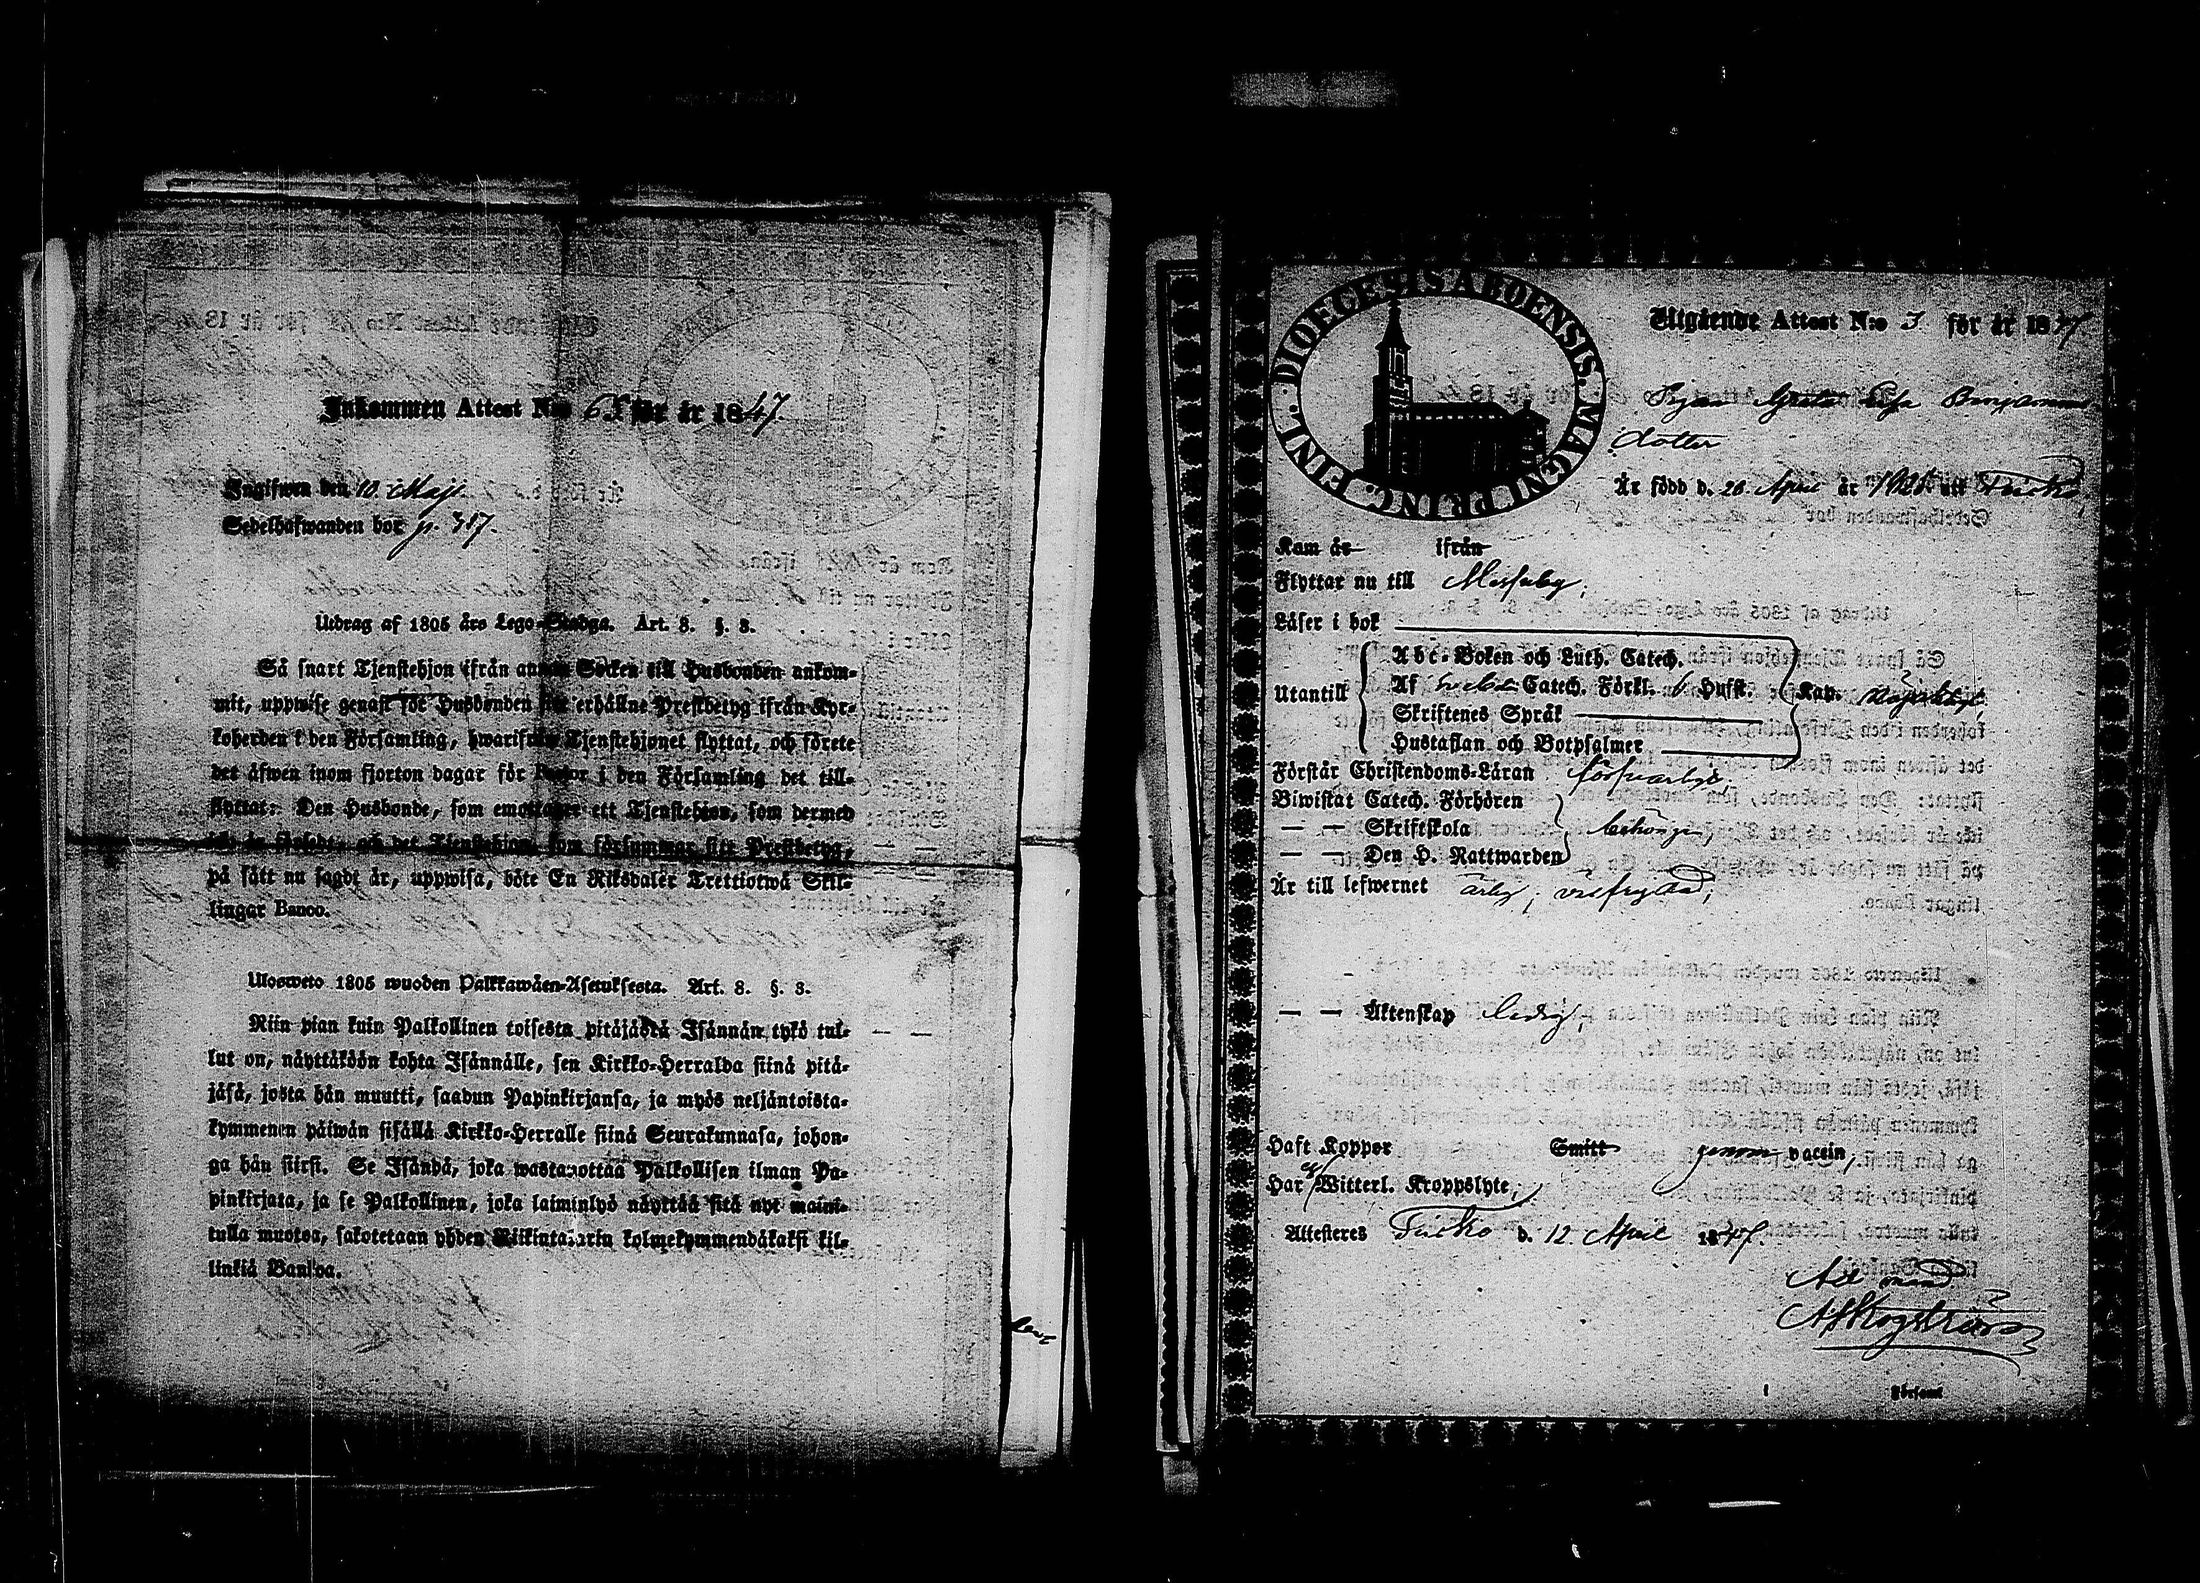 Inkommen Attest N:o 65 för år 1847.
Ingifwen den 10. Maji.
Sedelhafwanden bor p. 387.
Utdrag af 1805 års Lego-Stadga. Art. 8. §. 3.
Så snart Tjenstehjon ifrån annan Socken till Husbonden ankom-
mit, uppwise genast för Husbonden sitt erhållne Prestbetyg ifrån Kyr-
koherden i den Församling, hwarifrån Tjenstehjonet flyttat, och förete
det äfwen inom fjorton dagar för Pastor i den Församling det till-
flyttat: Den Husbonde, som emottager ett Tjenstehjon, som dermed
icke är försedt, och det Tjenstehjon, som försummar sitt Prestbetyg,
på sätt nu sagdt är, uppwisa, böte En Riksdaler Trettiotwå Skil-
lingar Banco.
Ulosweto 1805 wuoden Palkkawäen-Asetuksesta. Art. 8. §. 3.
Niin pian kuin Palkollinen toisesta pitäjästä Isännän tykö tul-
lut on, näyttäköön kohta Isännälle, sen Kirkko-Herralda siinä pitä-
jäsä, josta hän muutti, saadun Papinkirjansa, ja myös neljäntoista-
kymmenen päiwän sisällä Kirkko-Herralle siinä Seurakunnasa, johon-
ga hän siirsi. Se Isändä, joka wastaanottaa Palkollisen ilman Pa-
pinkirjata, ja se Palkollinen, joka laiminlyö näyttää sitä nyt maini-
tulla muotoa, sakotetaan yhden Riikintalarin kolmekymmendäkaksi kil-
linkiä Bankoa.
DIOECESIS ABOENSIS. MAGNI PRINC. FINL.
Utgående Attest N:o 3 för år 1847
Pigan Greta Lisa Benjamins
dotter
Är född d. 26 April år uti
Kom år ifrån
Flyttar nu till Messuby,
Läser i bok
Abc-Boken och Luth. Catech.
Utantill Af Catech. Förkl. 6 Hufst. Kap.
Skriftenes Språk
Hustaflan och Botpsalmer
Förstår Christendoms-Läran försvarligt,
Biwistat Catech. Förhören
— — Skriftskola behörigen,
— — Den H. Nattwarden
Är till lefwernet ärlig, välfrejdad,
— — Äktenskap ledig,
Haft Koppor Smitt genom vaccin,
Har ej Witterl. Kroppslyte,
Attesteres d. 12 April 1847.
Ad mand
AfSkogström
Församl